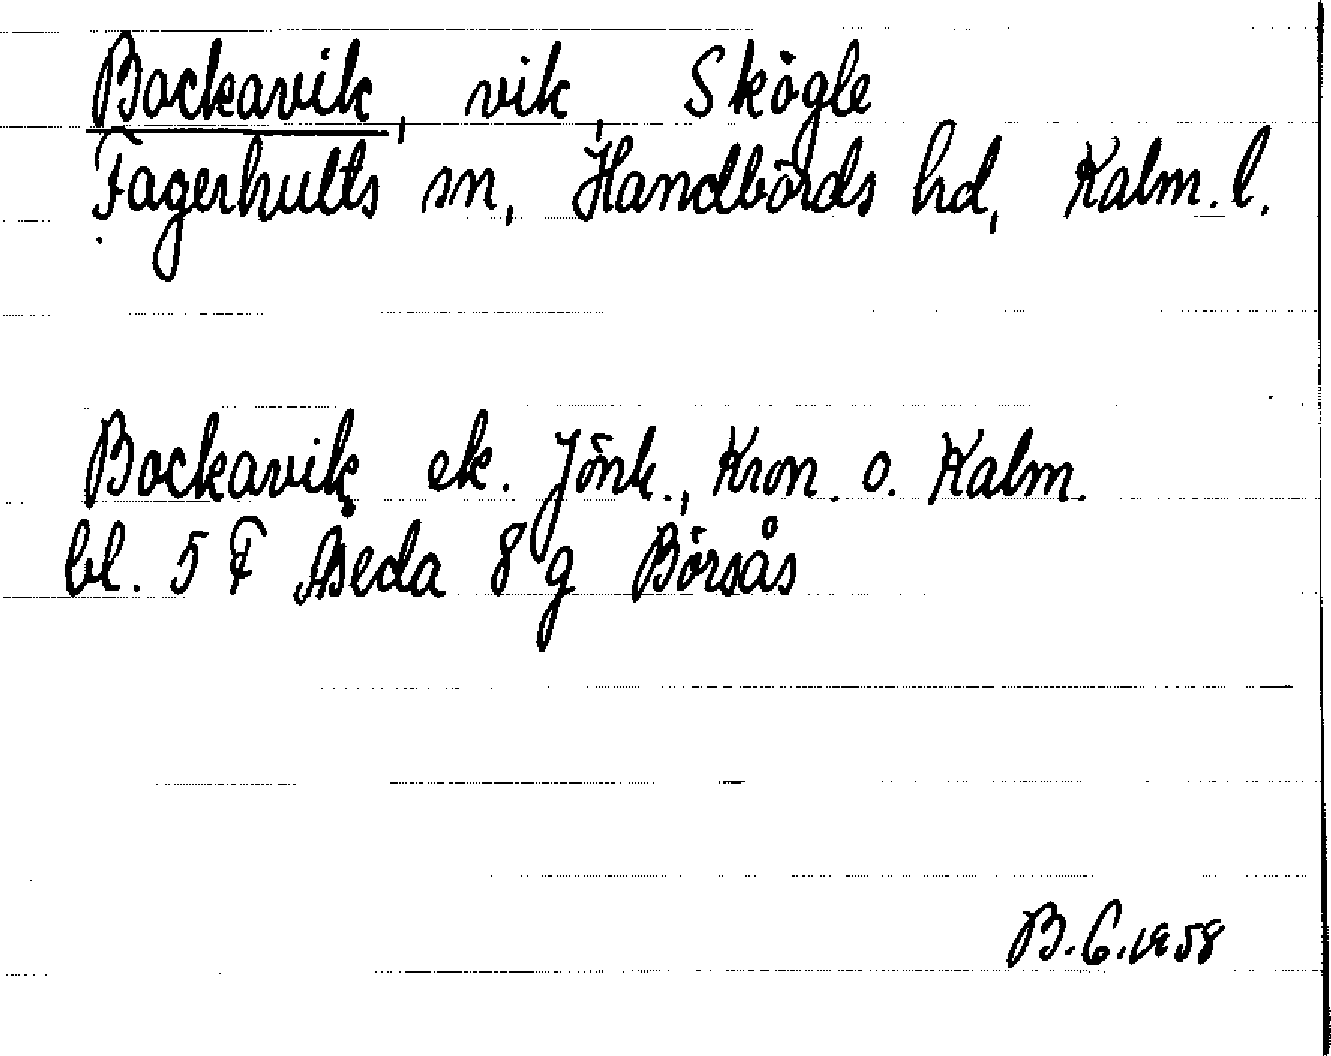 Bockavik, vik, Skögle
Fagerhults sn, Handbörds hd, Kalm. l.
Bockavik ek. Jönk., Kron. o. Kalm.
bl. 5 F Åseda 8 g Börsås
B.G. 1958